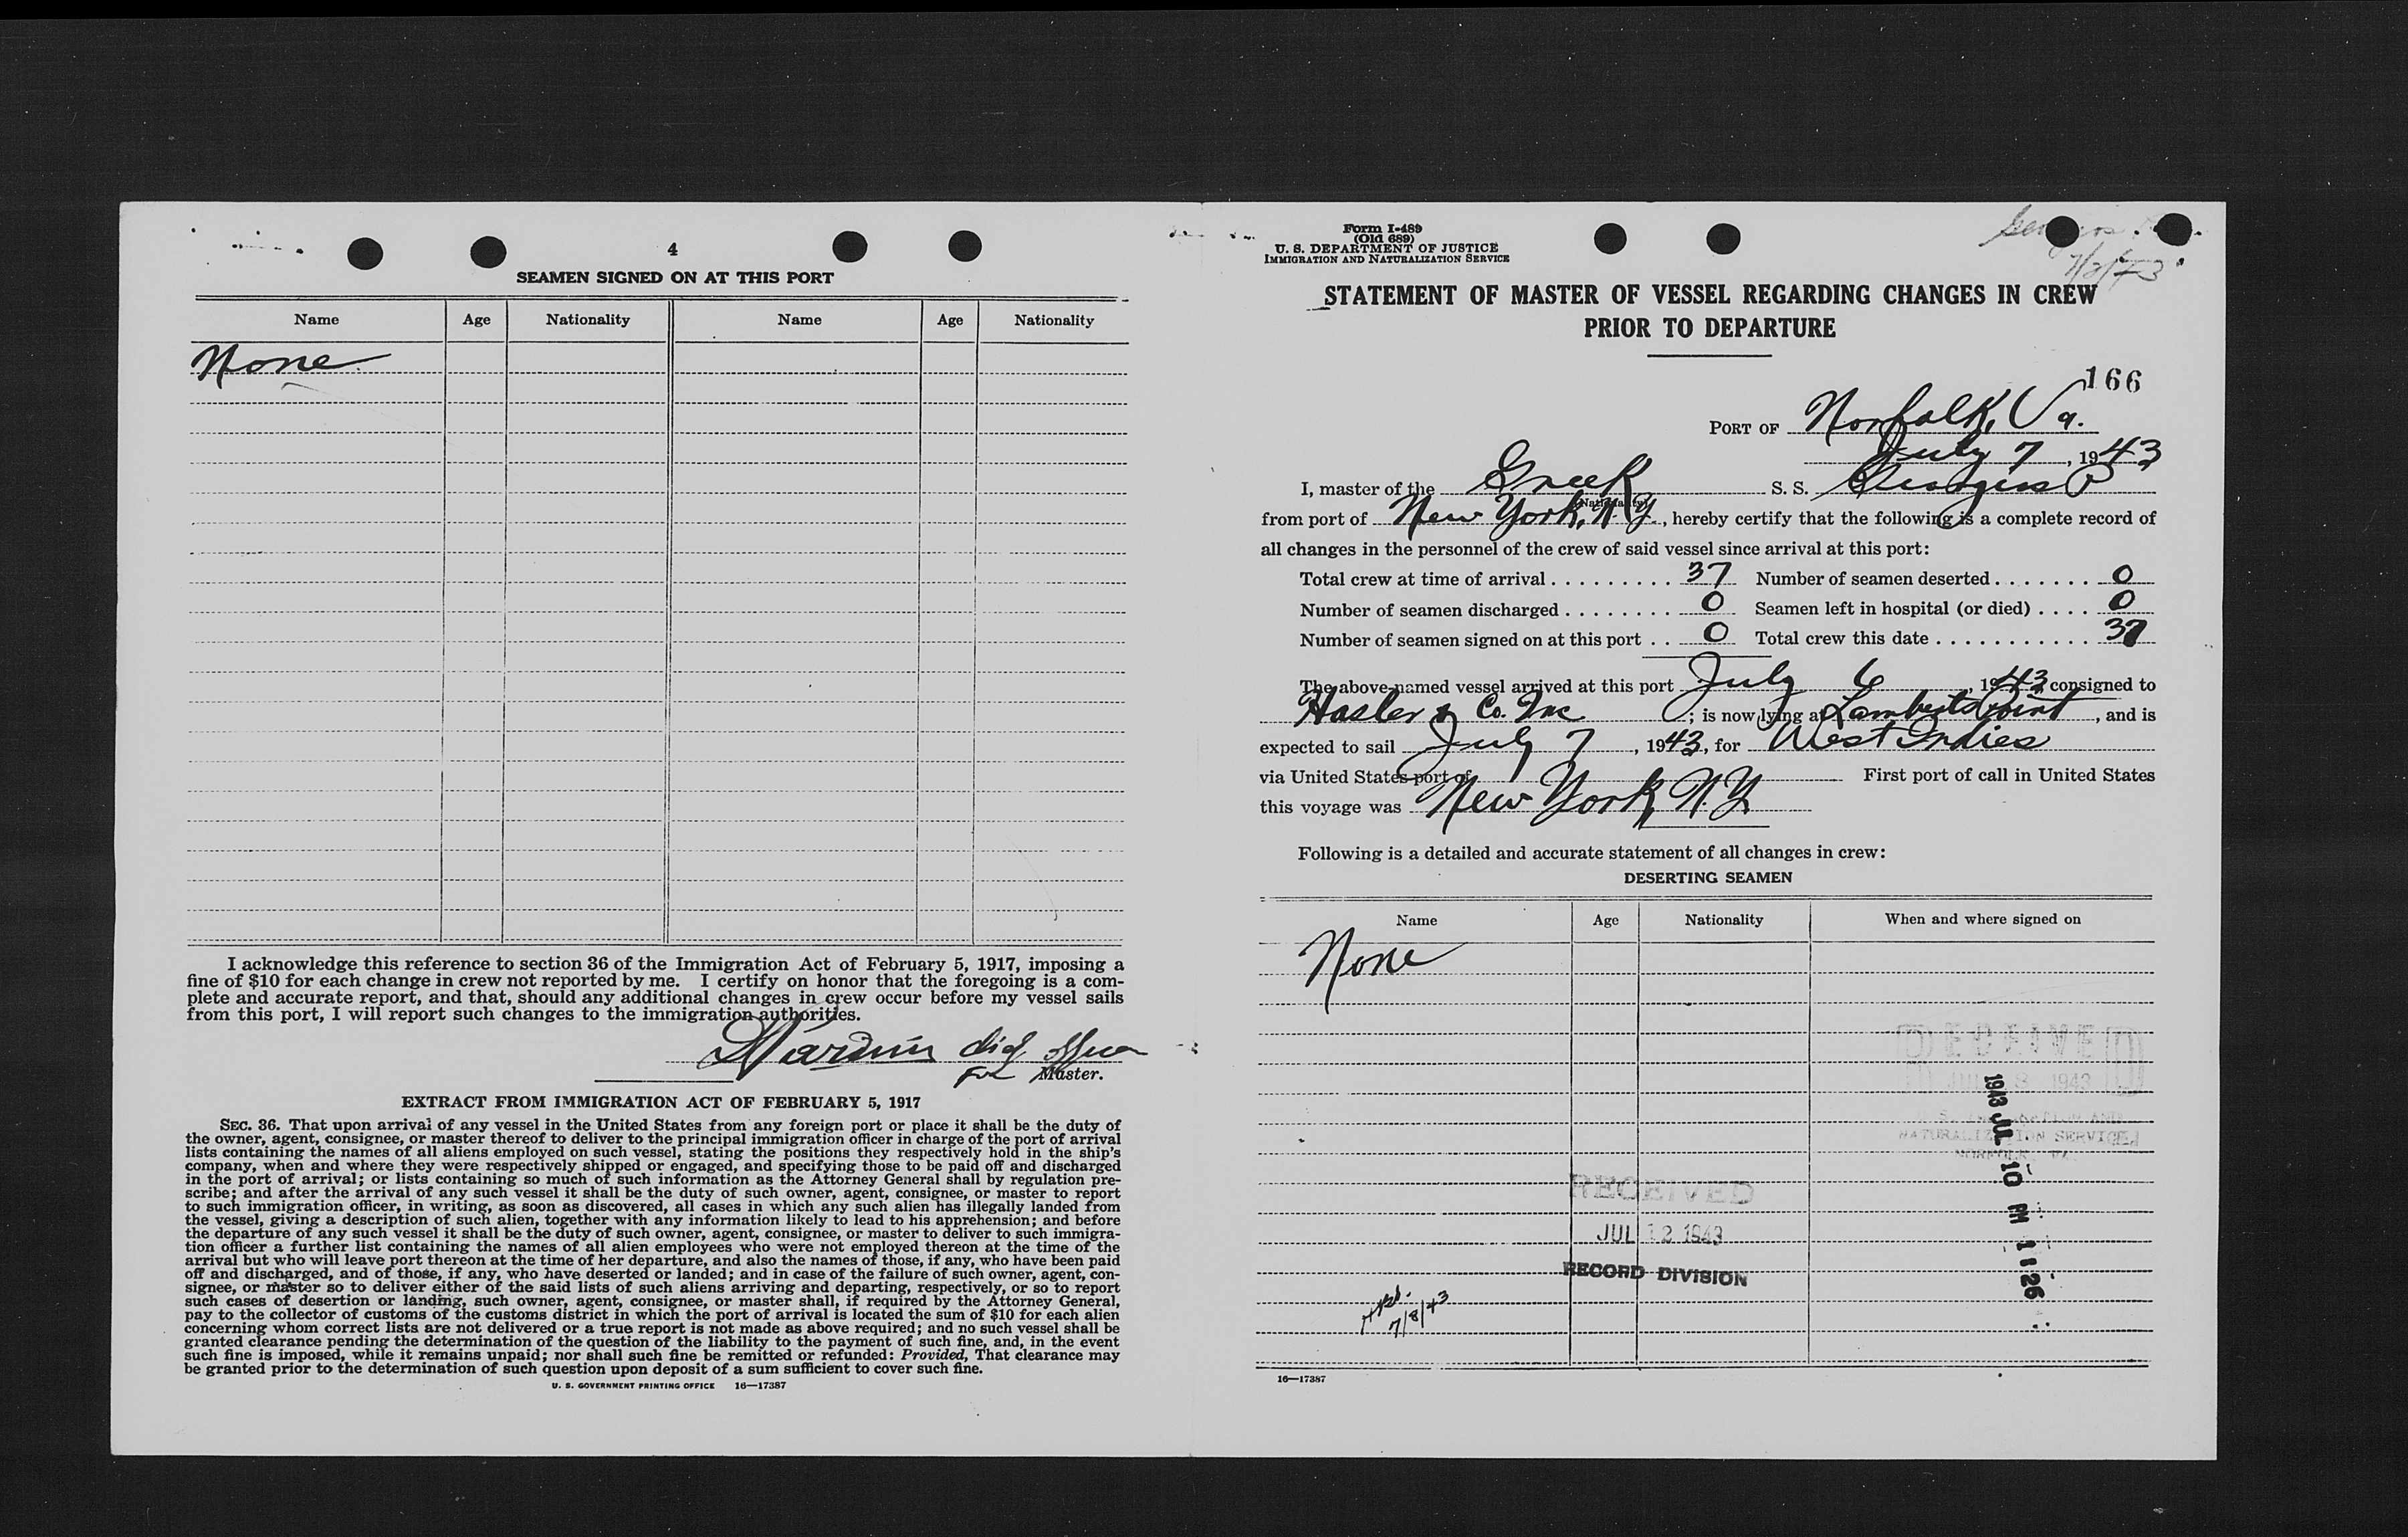 4
SEAMEN SIGNED ON AT THIS PORT
Name Age Nationality Name Age Nationality
None
I acknowledge this reference to section 36 of the Immigration Act of February 5, 1917, imposing a
fine of $10 for each change in crew not reported by me. I certify on honor that the foregoing is a com-
plete and accurate report, and that, should any additional changes in crew occur before my vessel sails
from this port, I will report such changes to the immigration authorities.
For Master.
EXTRACT FROM IMMIGRATION ACT OF FEBRUARY 5, 1917
SEC. 36. That upon arrival of any vessel in the United States from any foreign port or place it shall be the duty of
the owner, agent, consignee, or master thereof to deliver to the principal immigration officer in charge of the port of arrival
lists containing the names of all aliens employed on such vessel, stating the positions they respectively hold in the ship's
company, when and where they were respectively shipped or engaged, and specifying those to be paid off and discharged
in the port of arrival; or lists containing so much of such information as the Attorney General shall by regulation pre-
scribe; and after the arrival of any such vessel it shall be the duty of such owner, agent, consignee, or master to report
to such immigration officer, in writing, as soon as discovered, all cases in which any such alien has illegally landed from
the vessel, giving a description of such alien, together with any information likely to lead to his apprehension; and before
the departure of any such vessel it shall be the duty of such owner, agent, consignee, or master to deliver to such immigra-
tion officer a further list containing the names of all alien employees who were not employed thereon at the time of the
arrival but who will leave port thereon at the time of her departure, and also the names of those, if any, who have been paid
off and discharged, and of those, if any, who have deserted or landed; and in case of the failure of such owner, agent, con-
signee, or master so to deliver either of the said lists of such aliens arriving and departing, respectively, or so to report
such cases of desertion or landing, such owner, agent, consignee, or master shall, if required by the Attorney General,
pay to the collector of customs of the customs district in which the port of arrival is located the sum of $10 for each alien
concerning whom correct lists are not delivered or a true report is not made as above required; and no such vessel shall be
granted clearance pending the determination of the question of the liability to the payment of such fine, and, in the event
such fine is imposed, while it remains unpaid; nor shall such fine be remitted or refunded: Provided, That clearance may
be granted prior to the determination of such question upon deposit of a sum sufficient to cover such fine.
U. S. GOVERNMENT PRINTING OFFICE 16—17387
Form I-489
(Old 689)
U. S. DEPARTMENT OF JUSTICE
IMMIGRATION AND NATURALIZATION SERVICE
STATEMENT OF MASTER OF VESSEL REGARDING CHANGES IN CREW
PRIOR TO DEPARTURE
166
PORT OF Norfolk, Va.
July 7, 1943
I, master of the Greek S. S. Georgios P
(Nationality)
from port of New York, N.Y., hereby certify that the following is a complete record of
all changes in the personnel of the crew of said vessel since arrival at this port:
Total crew at time of arrival . . . . . . . . . 37 Number of seamen deserted . . . . . . . 0
Number of seamen discharged . . . . . . . . 0 Seamen left in hospital (or died) . . . . 0
Number of seamen signed on at this port . . 0 Total crew this date . . . . . . . . . . . . 37
The above-named vessel arrived at this port July 6, 1943, consigned to
Hasler & Co. Inc; is now lying at Lamberts Point, and is
expected to sail July 7, 1943, for West Indies
via United States port of First port of call in United States
this voyage was New York, N.Y.
Following is a detailed and accurate statement of all changes in crew:
DESERTING SEAMEN
Name Age Nationality When and where signed on
None
RECEIVED
JUL 8 1943
NATURALIZATION SERVICE
NORFOLK, VA.
1943 JUL 10 PM 11 26
RECEIVED
JUL 12 1943
RECORD DIVISION
7/8/43
16—17387